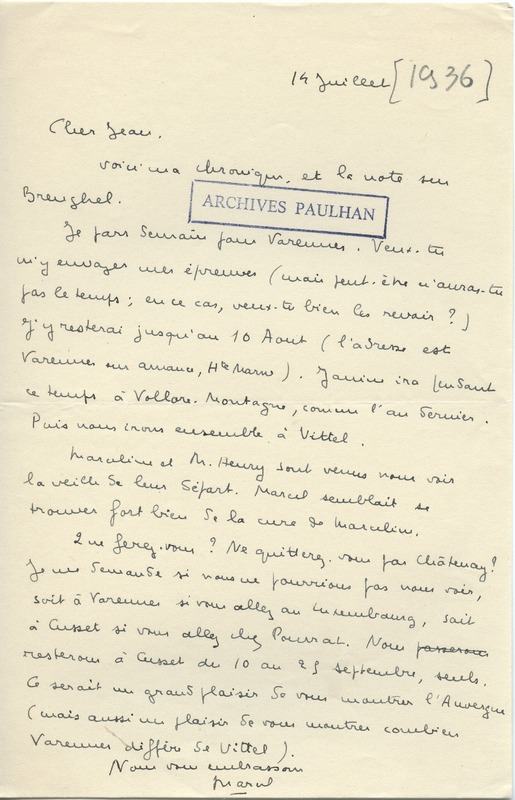 14 Juillet [1936]
Cher Jean,
voici ma chronique, et la note sur
Breughel.
ARCHIVES PAULHAN
Je pars demain pour Varennes. Veux-tu
m'y envoyer mes épreuves (mais peut-être n'auras-tu
pas le temps ; en ce cas, veux-tu bien les revoir ?)
J'y resterai jusqu'au 10 Aout (l'adresse est
Varennes sur amance, Hte Marne). Janine ira pendant
ce temps à Vollore-Montagne, comme l'an dernier.
Puis nous irons ensemble à Vittel.
Marceline et M. Henry sont venus nous voir
la veille de leur départ. Marcel semblait se
trouver fort bien de la cure de Marcelin.
Que ferez-vous ? Ne quitterez-vous pas Châtenay ?
Je me demande si nous ne pourrions pas nous voir,
soit à Varennes si vous allez au Luxembourg, soit
à Cusset si vous allez chez Pourrat. Nous passerons
resterons à Cusset du 10 au 25 septembre, seuls.
Ce serait un grand plaisir de vous montrer l'Auvergne
(mais aussi un plaisir de vous montrer combien
Varennes diffère de Vittel).
Nous vous embrassons
Marcel